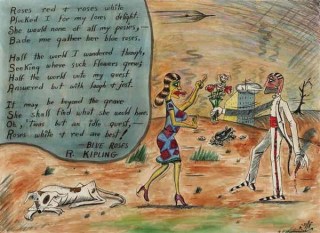 Roses red & roses white
Plucked I for my loves delight.
She would none of all my posies,—
Bade me gather her blue roses.
Half the world I wandered though,
Seeking where such flowers grew;
Half the world unto my quest
Answered but with laugh & jest.
It may be beyond the grave
She shall find what she would have.
Oh, 'Twas but an idle quest,—
Roses white & red are best!
—BLUE ROSES
R. KIPLING